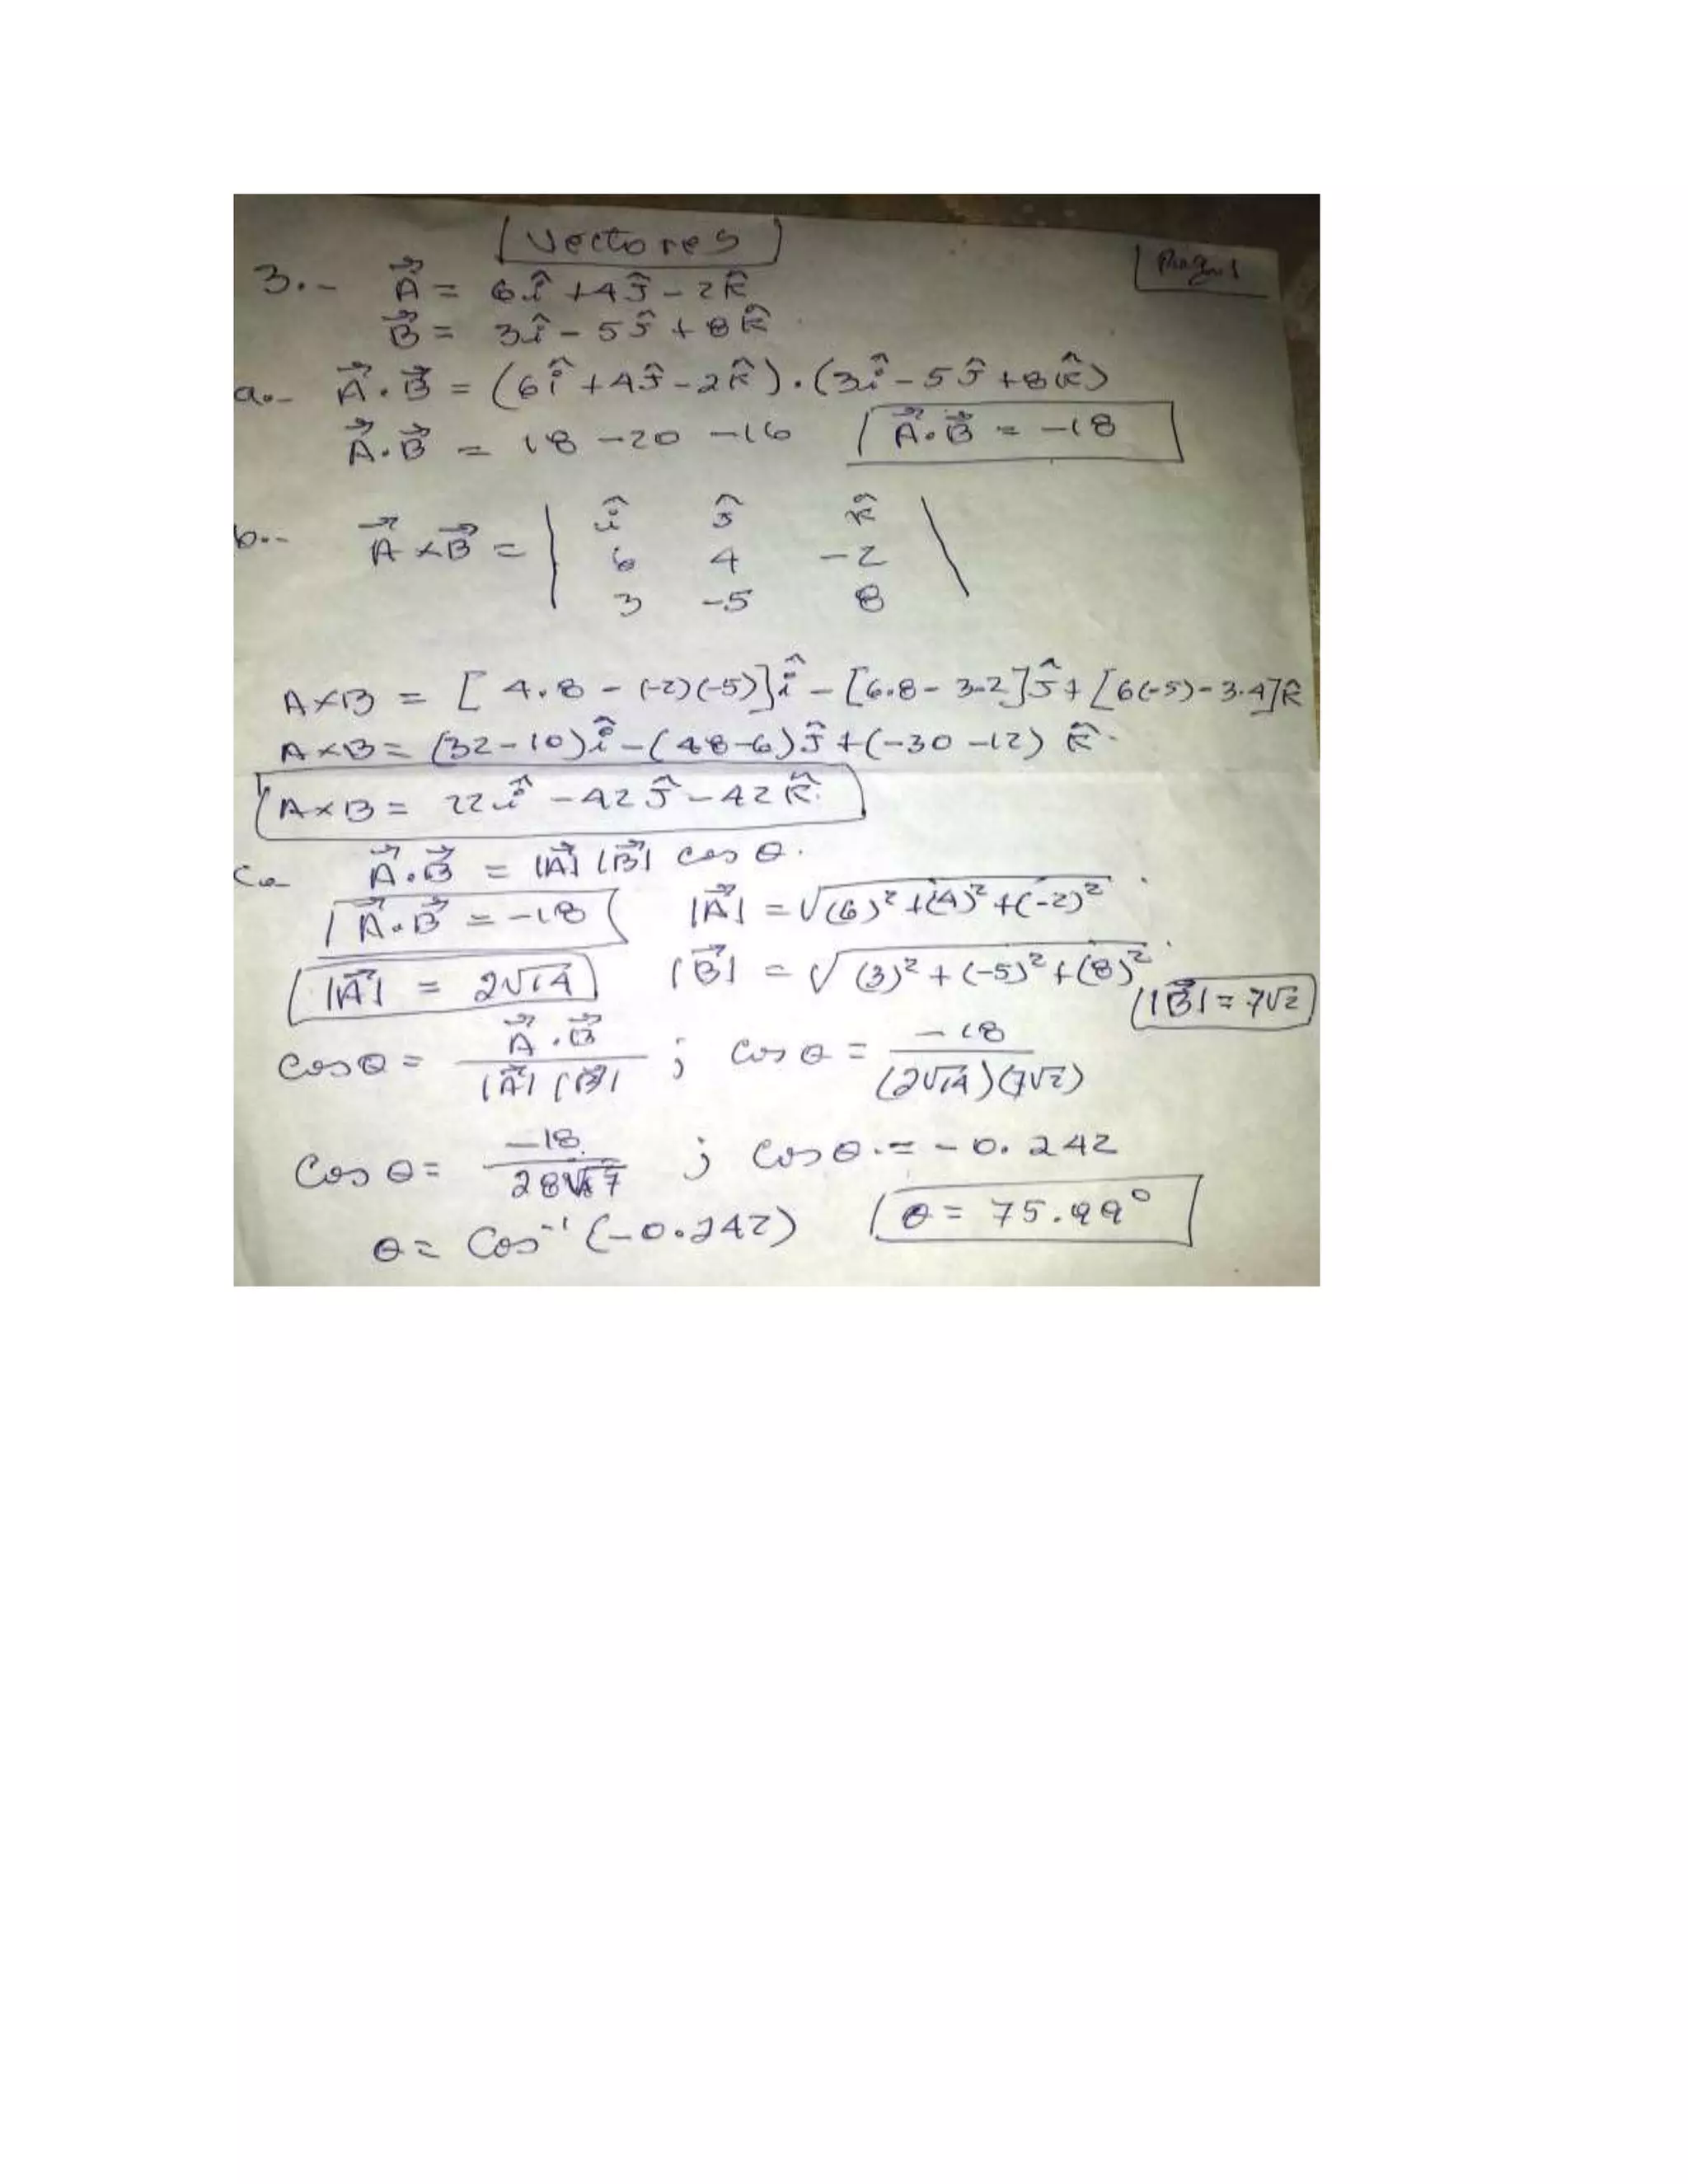 Vectores
Pag. 1
3.- A⃗ = 6î + 4ĵ - 2k̂
B⃗ = 3î - 5ĵ + 8k̂
a.- A⃗ . B⃗ = (6î + 4ĵ - 2k̂) . (3î - 5ĵ + 8k̂)
A⃗ . B⃗ = 18 - 20 - 16 A⃗ . B⃗ = -18
b.- A⃗ × B⃗ = | î ĵ k̂ |
6 4 -2
3 -5 8
A×B = [4.8 - (-2)(-5)]î - [6.8 - 3.2]ĵ + [6(-5) - 3.4]k̂
A×B = (32 - 10)î - (48 - 6)ĵ + (-30 - 12)k̂.
A×B = 22î - 42ĵ - 42k̂.
c.- A⃗ . B⃗ = |A⃗| |B⃗| cos θ.
A⃗ . B⃗ = -18 |A⃗| = √(6)² + (4)² + (-2)²
|A⃗| = 2√14 |B⃗| = √(3)² + (-5)² + (8)² |B⃗| = 7√2
cos θ = A⃗ . B⃗ / |A⃗| |B⃗| ; cos θ = -18 / (2√14)(7√2)
cos θ = -18 / 28√7 ; cos θ = -0.242
θ = cos⁻¹ (-0.242) θ = 75.99°